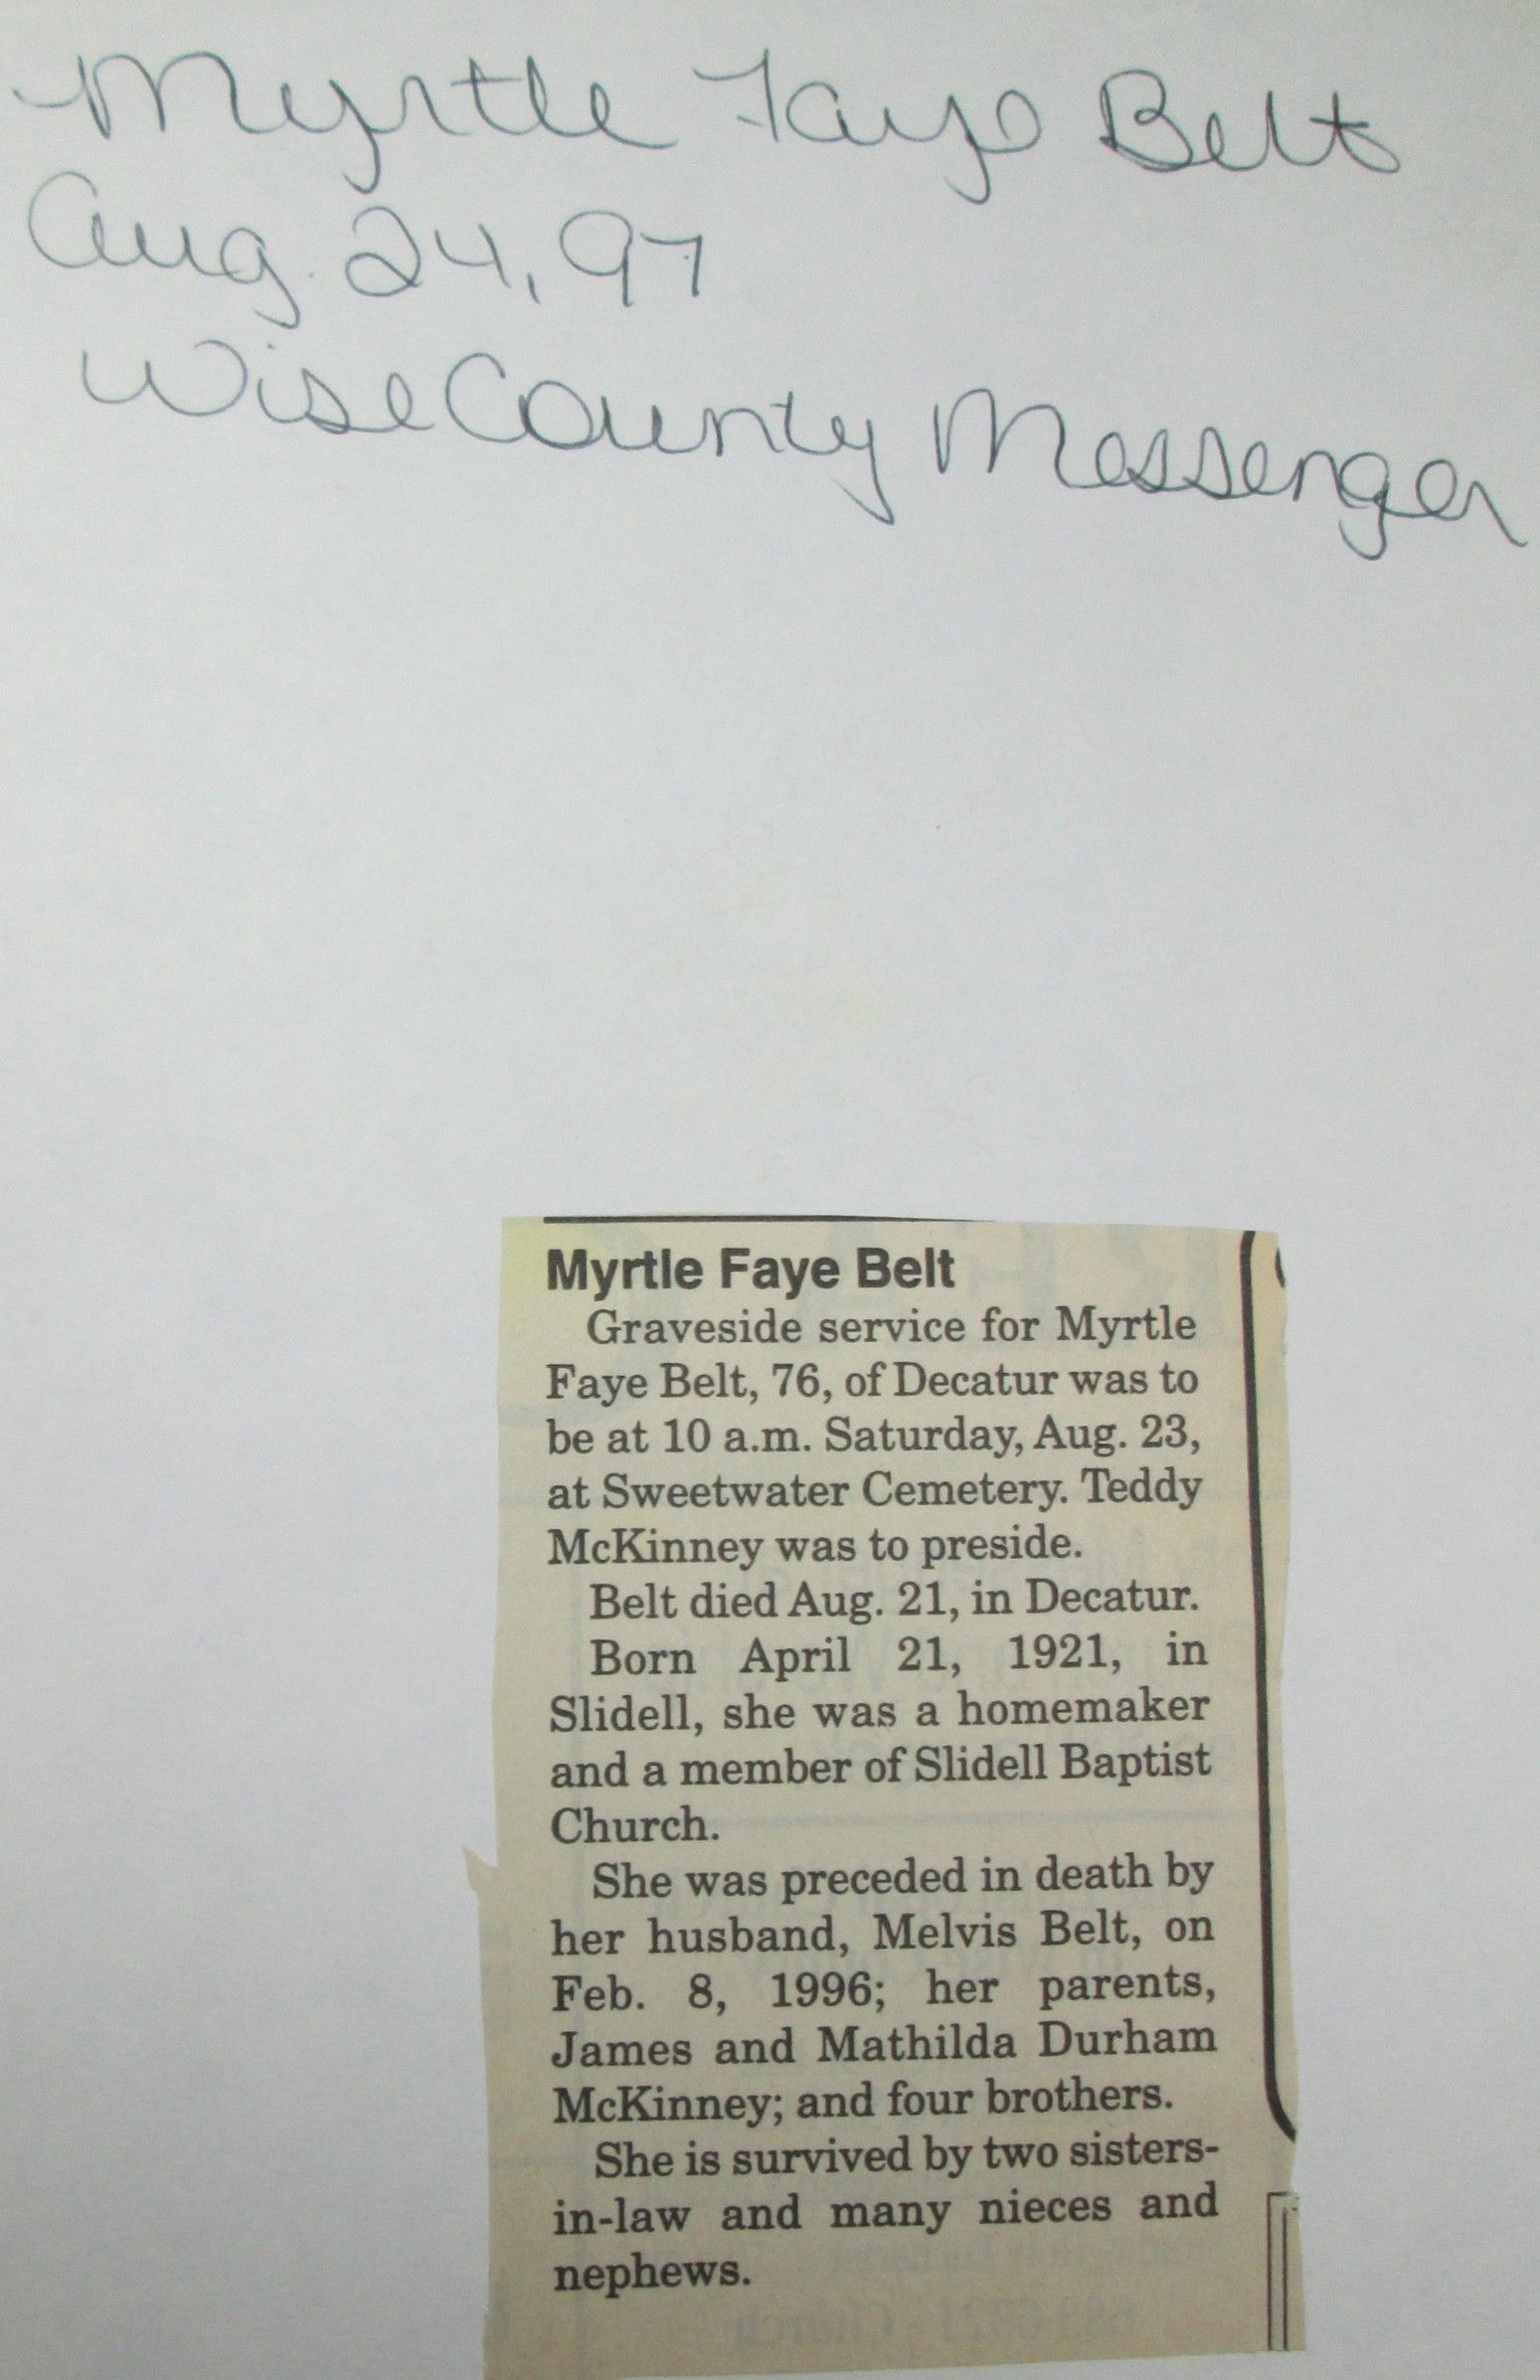 Myrtle Faye Belt
Aug. 24, 97
Wise County Messenger
Myrtle Faye Belt
Graveside service for Myrtle
Faye Belt, 76, of Decatur was to
be at 10 a.m. Saturday, Aug. 23,
at Sweetwater Cemetery. Teddy
McKinney was to preside.
Belt died Aug. 21, in Decatur.
Born April 21, 1921, in
Slidell, she was a homemaker
and a member of Slidell Baptist
Church.
She was preceded in death by
her husband, Melvis Belt, on
Feb. 8, 1996; her parents,
James and Mathilda Durham
McKinney; and four brothers.
She is survived by two sisters-
in-law and many nieces and
nephews.